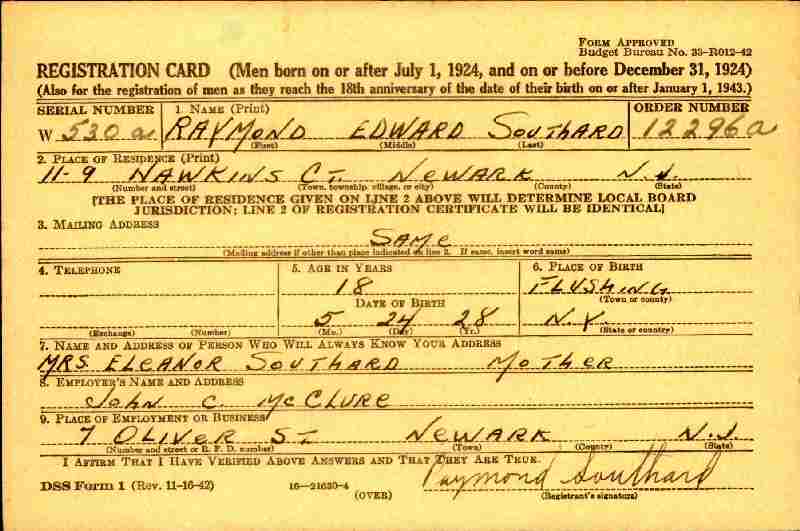 FORM APPROVED
Budget Bureau No. 33-R012-42
REGISTRATION CARD (Men born on or after July 1, 1924, and on or before December 31, 1924)
(Also for the registration of men as they reach the 18th anniversary of the date of their birth on or after January 1, 1943.)
SERIAL NUMBER 1 NAME (Print) ORDER NUMBER
W 530a RAYMOND EDWARD SOUTHARD 12296a
(First) (Middle) (Last)
2. PLACE OF RESIDENCE (Print)
11-9 HAWKINS CT. NEWARK N.J.
(Number and street) (Town, township, village, or city) (County) (State)
[THE PLACE OF RESIDENCE GIVEN ON LINE 2 ABOVE WILL DETERMINE LOCAL BOARD
JURISDICTION; LINE 2 OF REGISTRATION CERTIFICATE WILL BE IDENTICAL]
3. MAILING ADDRESS
SAME
(Mailing address if other than place indicated on line 2. If same, insert word same)
4. TELEPHONE 5. AGE IN YEARS 6. PLACE OF BIRTH
18 FLUSHING
DATE OF BIRTH (Town or county)
5 24 28 N.Y.
(Exchange) (Number) (Mo.) (Day) (Yr.) (State or country)
7. NAME AND ADDRESS OF PERSON WHO WILL ALWAYS KNOW YOUR ADDRESS
MRS. ELEANOR SOUTHARD MOTHER
8. EMPLOYER'S NAME AND ADDRESS
JOHN C. McCLURE
9. PLACE OF EMPLOYMENT OR BUSINESS
7 OLIVER ST. NEWARK N.J.
(Number and street or R. F. D. number) (Town) (County) (State)
I AFFIRM THAT I HAVE VERIFIED ABOVE ANSWERS AND THAT THEY ARE TRUE.
Raymond Southard
DSS Form 1 (Rev. 11-16-42) 16—21630-4 (OVER) (Registrant's signature)